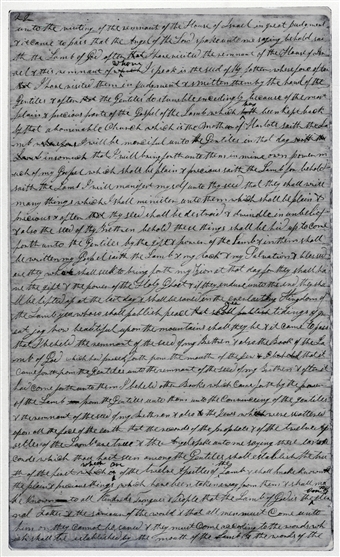 unto the visiting of the remnant of the House of Israel in great judgment
& it came to pass that the Angel of the Lord spake unto me saying behold sa
ith the Lamb of God after that I have visited the remnant of the House of Isra
el & this remnant of whom I speak is the seed of thy father wherefore after
I have visited them in judgment & smitten them by the hand of the
Gentiles & after the Gentiles do stumble exceedingly because of the most
plain & precious parts of the Gospel of the Lamb which hath been kept back
by that abominable Church which is the Mother of Harlots saith the La
mb I will be merciful unto the Gentiles in that day
insomuch that I will bring forth unto them in mine own power m
uch of my Gospel which shall be plain & precious saith the Lamb for behold
saith the Lamb I will manifest myself unto thy seed that they shall write
many things which I shall minister unto them which shall be plain &
precious & after thy seed shall be destroid & dwindle in unbelief
& also the seed of thy Brethren behold these things shall be hid up to come
forth unto the Gentiles by the gift & power of the Lamb & in them shall
be written my Gospel saith the Lamb & my rock & my Salvation & blessed
are they which shall seek to bring forth my Zion at that day for they shall ha
ve the gift & the power of the Holy Ghost & if they endure unto the end they sha
ll be lifted up at the last day & shall be saved in the everlasting Kingdom of
the Lamb yea whoso shall publish peace that shall publish tidings of gr
eat joy how beautiful upon the mountains shall they be & it came to pass
that I beheld the remnant of the seed of my Brethren & also the Book of the La
mb of God which had proceded forth from the mouth of the Jew & I beheld that it
came forth from the Gentiles unto the remnant of the seed of my Brethren & after it
had come forth unto them I beheld other Books which came forth by the power
of the Lamb from the Gentiles unto them unto the convinceing of the gentiles
& the remnant of the seed of my Brethren & also to the Jews which were scattered
upon all the face of the earth that the records of the prophets & of the twelve Ap
ostles of the Lamb are true & the Angel spake unto me saying these last re
cords which thou hast seen among the Gentiles shall establish the truth
of the first which is of the twelve Apostles of the Lamb & shall make known
the plain & precious things which have been taken away from them & shall ma
ke known to all Kindreds Tongues & People that the Lamb of God is the eter
nal Father & the saviour of the world & that all men must Come unto
him or they Cannot be saved & they must Come according to the words wh
ich shall be established by the mouth of the Lamb & the words of the